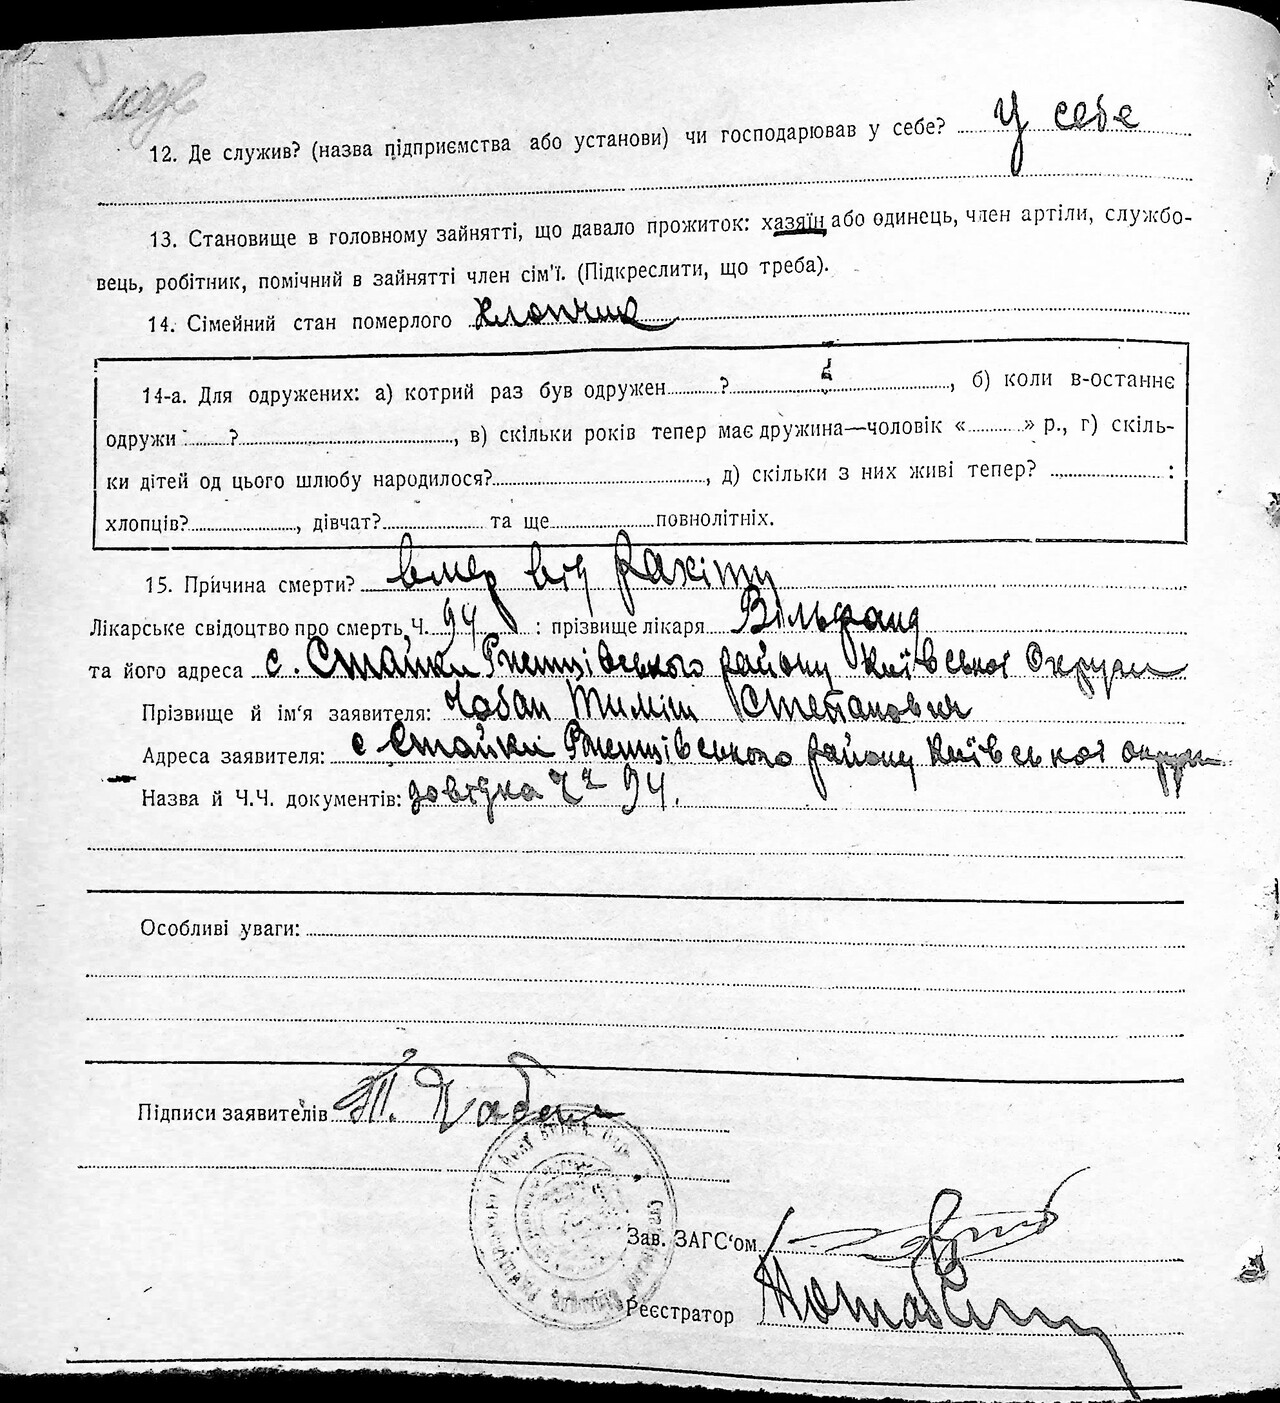 12. Де служив? (назва підприємства або установи) чи господарював у себе? У себе
13. Становище в головному зайнятті, що давало прожиток: хазяїн або одинець, член артіли, службо-
вець, робітник, помічний в зайнятті член сім'ї. (Підкреслити, що треба).
14. Сімейний стан померлого хлопчик
14-а. Для одружених: а) котрий раз був одружен ? , б) коли в-останнє
одружи ? , в) скільки років тепер має дружина—чоловік « » р., г) скіль-
ки дітей од цього шлюбу народилося? , д) скільки з них живі тепер? :
хлопців? , дівчат? та ще повнолітніх.
15. Причина смерти? вмер від рахіту
Лікарське свідоцтво про смерть, Ч. 94 : прізвище лікаря Вільфанд
та його адреса с. Стайки Ржищівського району Київської Округи
Прізвище й ім'я заявителя: Чобан Тиміш Степанович
Адреса заявителя: с Стайки Ржищівського району Київської округи
Назва й Ч.Ч. документів: довідка Ч 94.
Особливі уваги:
Підписи заявителів Т. Чабан
Зав. ЗАГС'ом
Реєстратор